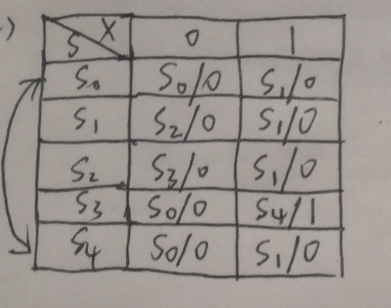 )
S X 0 1
S₀ S₀/0 S₁/0
S₁ S₂/0 S₁/0
S₂ S₃/0 S₁/0
S₃ S₀/0 S₄/1
S₄ S₀/0 S₁/0